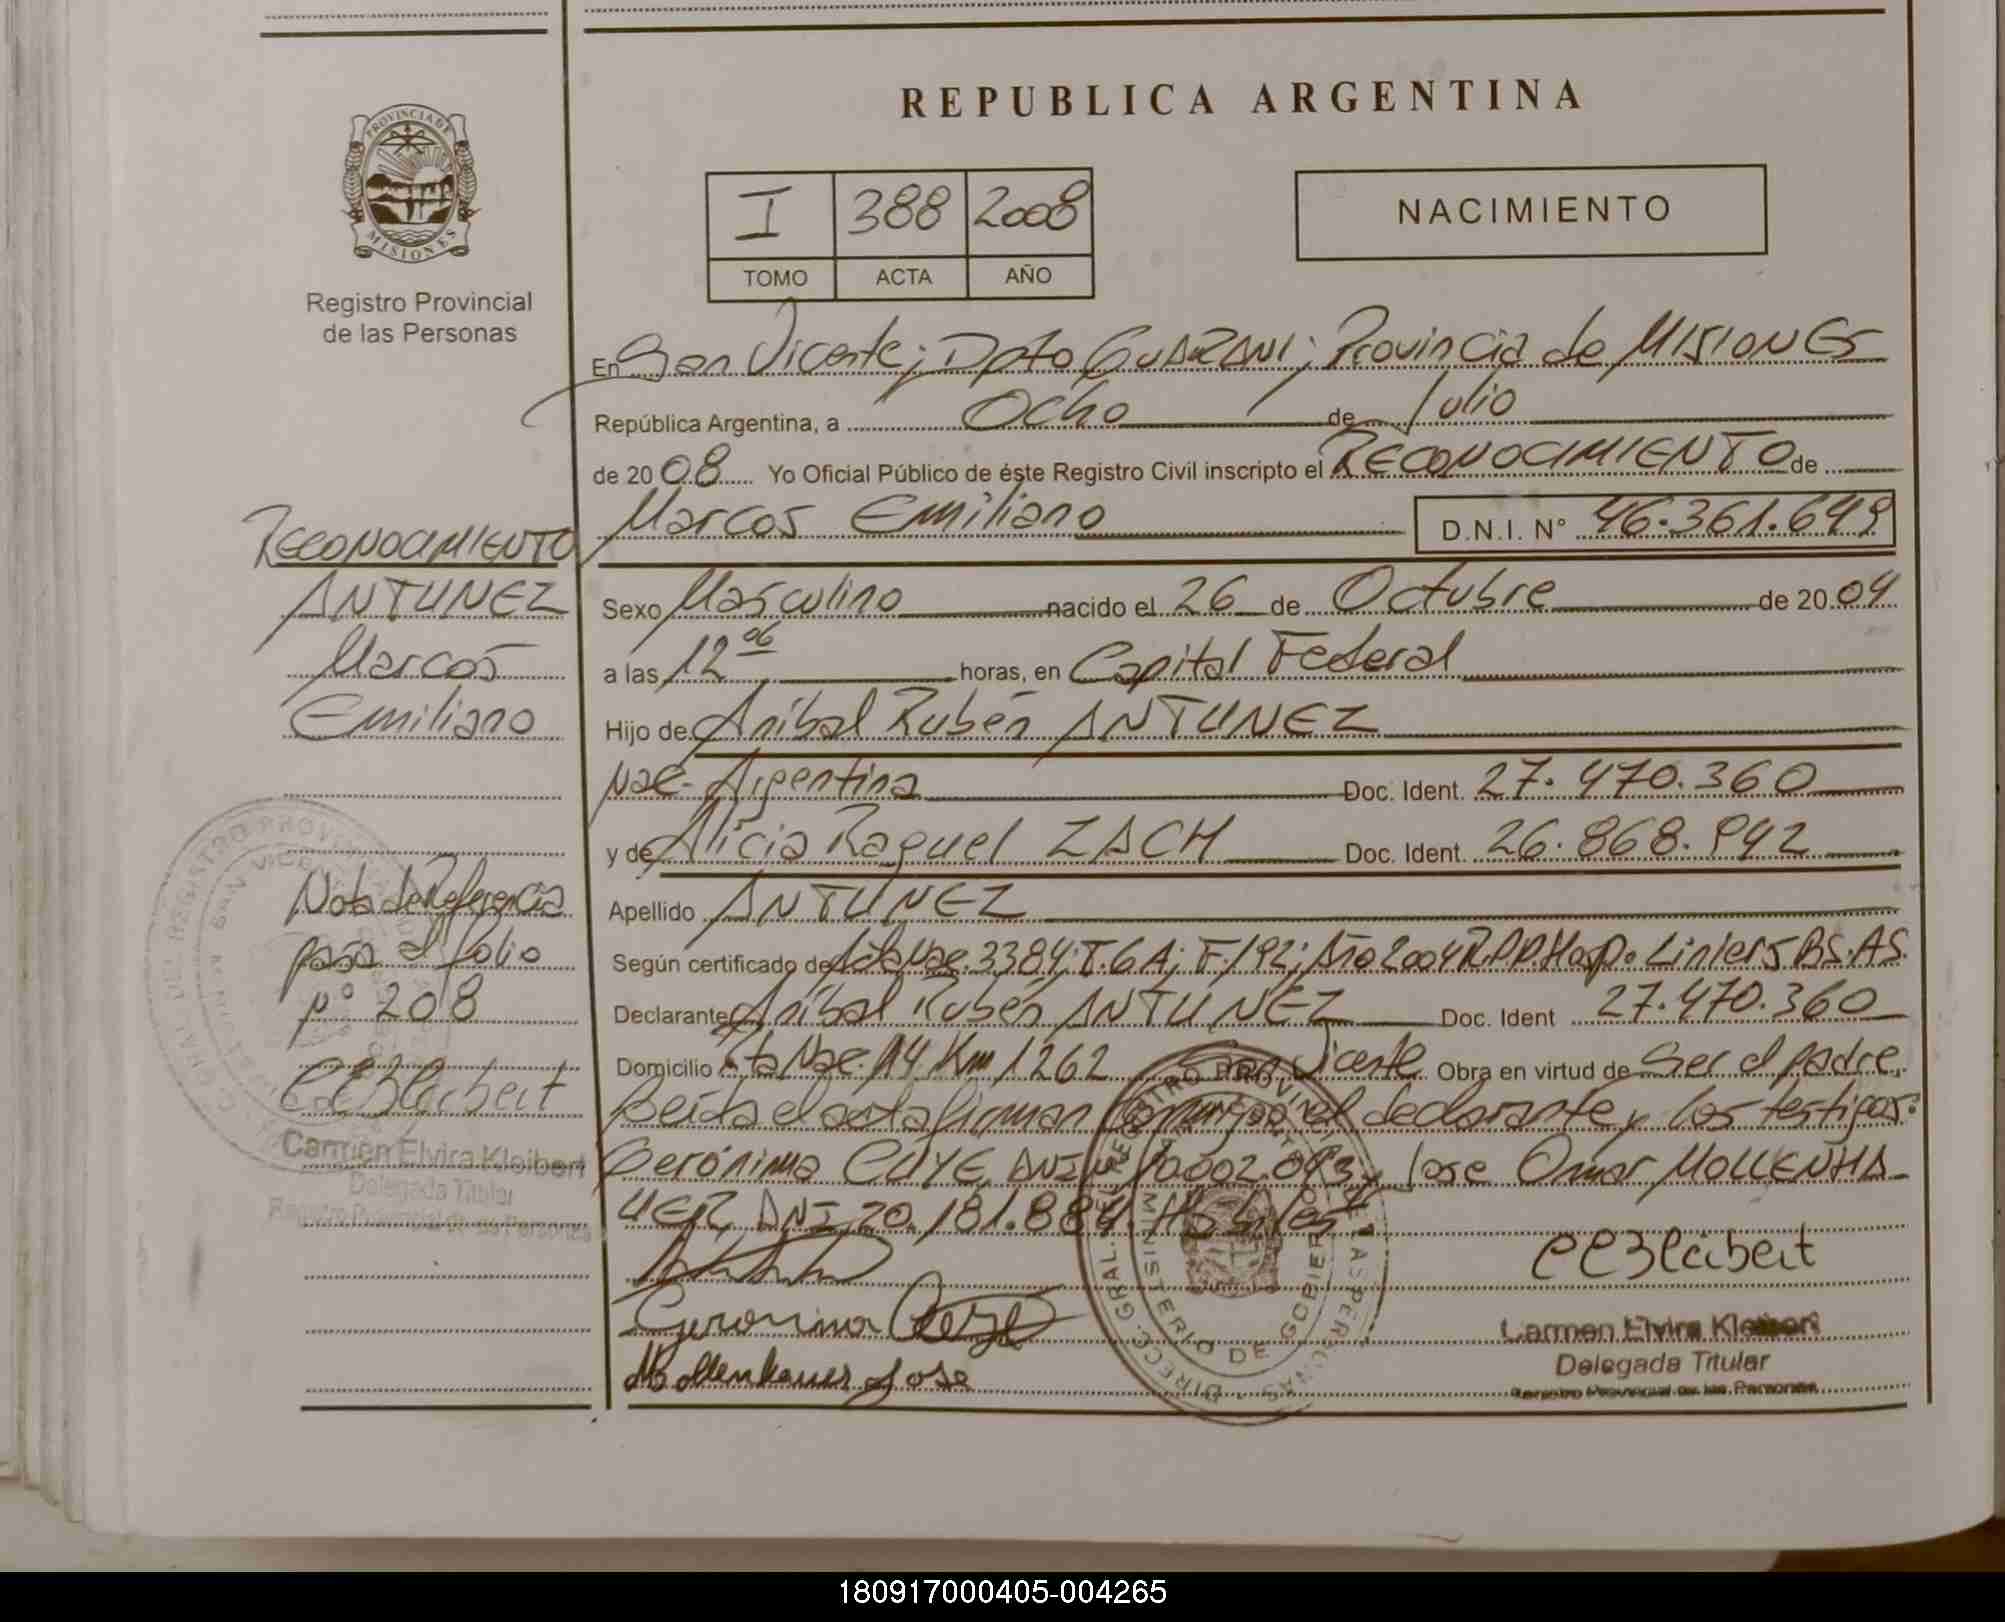 REPUBLICA ARGENTINA
PROVINCIA DE
MISIONES
Registro Provincial
de las Personas
I 388 2008
TOMO ACTA AÑO
NACIMIENTO
En San Vicente; Dpto GUARANI; Provincia de MISIONES
República Argentina, a Ocho de Julio
de 2008 Yo Oficial Público de éste Registro Civil inscripto el RECONOCIMIENTO de
Marcos Emiliano D.N.I. N° 46.361.649
Sexo Masculino nacido el 26 de Octubre de 2004
a las 12 06 horas, en Capital Federal
Hijo de Aníbal Rubén ANTUNEZ
Nac. Argentina Doc. Ident. 27.470.360
y de Alicia Raquel ZACH Doc. Ident. 26.868.942
Apellido ANTUNEZ
Según certificado de Acta Nac. 3384; T. 6A; F. 192; Año 2004 R.P.P. Hosp. Liniers BS.AS.
Declarante Aníbal Rubén ANTUNEZ Doc. Ident 27.470.360
Domicilio Rta Nac. 14 Km 1262 San Vicente Obra en virtud de Ser el padre.
Leída el acta firman conmigo el declarante y los testigos:
Gerónima CUYE, DNI y Jose Omar MOLLENHA
UER, DNI 20.181.884. Hábiles
Geronima
Mollenhauer Jose
CEKleibert
Carmen Elvira Kleibert
Delegada Titular
Registro Provincial de las Personas
MINISTERIO DE GOBIERNO
RECONOCIMIENTO
ANTUNEZ
Marcos
Emiliano
Nota de Referencia
pasa al folio
N° 208
CEKleibert
Carmen Elvira Kleibert
Delegada Titular
Registro Provincial de las Personas
180917000405-004265